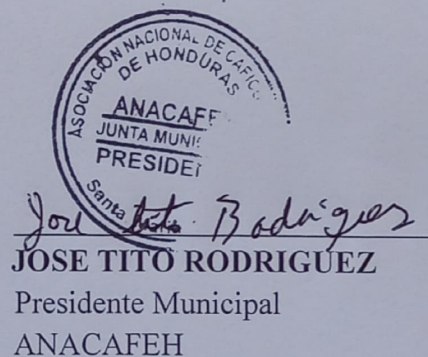 ASOCIACIÓN NACIONAL DE
DE HONDURAS
ANACAFE
JUNTA
Santa
Jose Tito Rodriguez
JOSE TITO RODRIGUEZ
Presidente Municipal
ANACAFEH